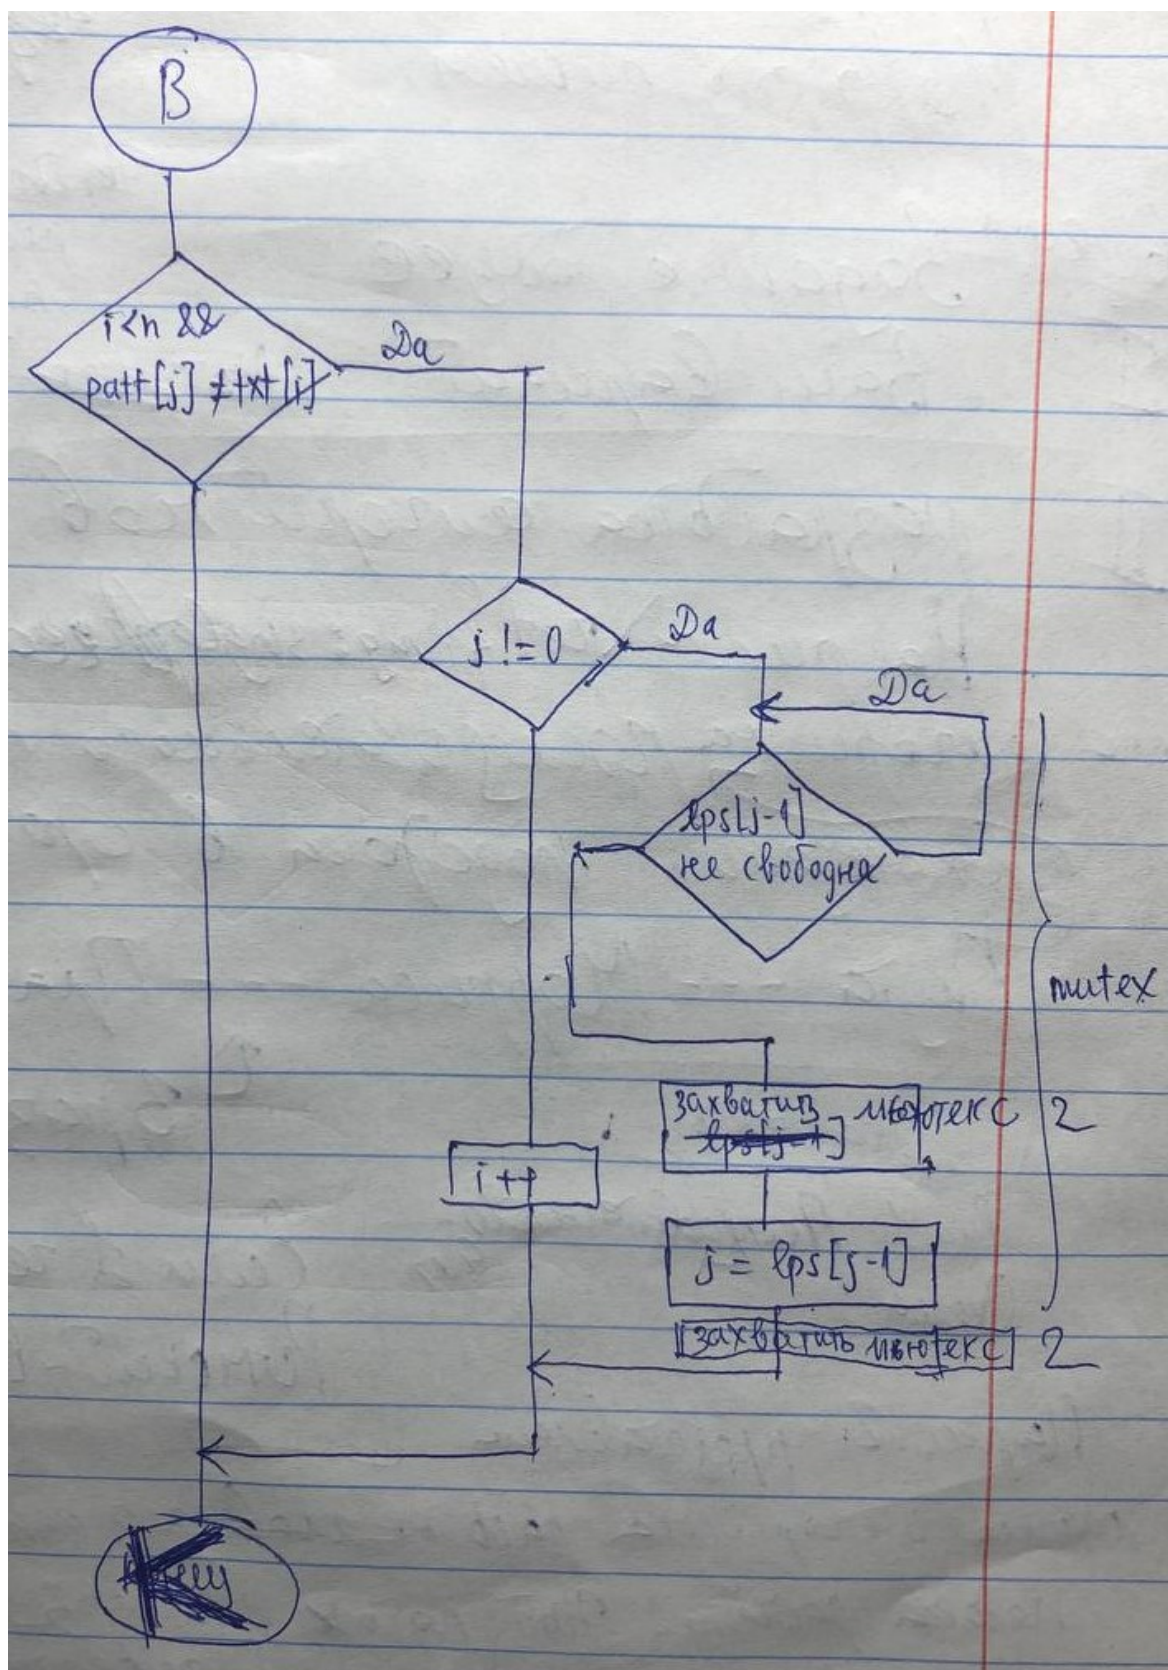 B
i<n &&
patt[j] ≠ txt[i]
Da
j != 0
Da
Da
lps[j-1]
не свободна
mutex
захватить мьютекс 2
i++
j = lps[j-1]
захватить мьютекс 2
K